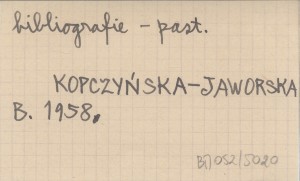 bibliografie – past.
KOPCZYŃSKA-JAWORSKA
B. 1958.
BJ052/5020